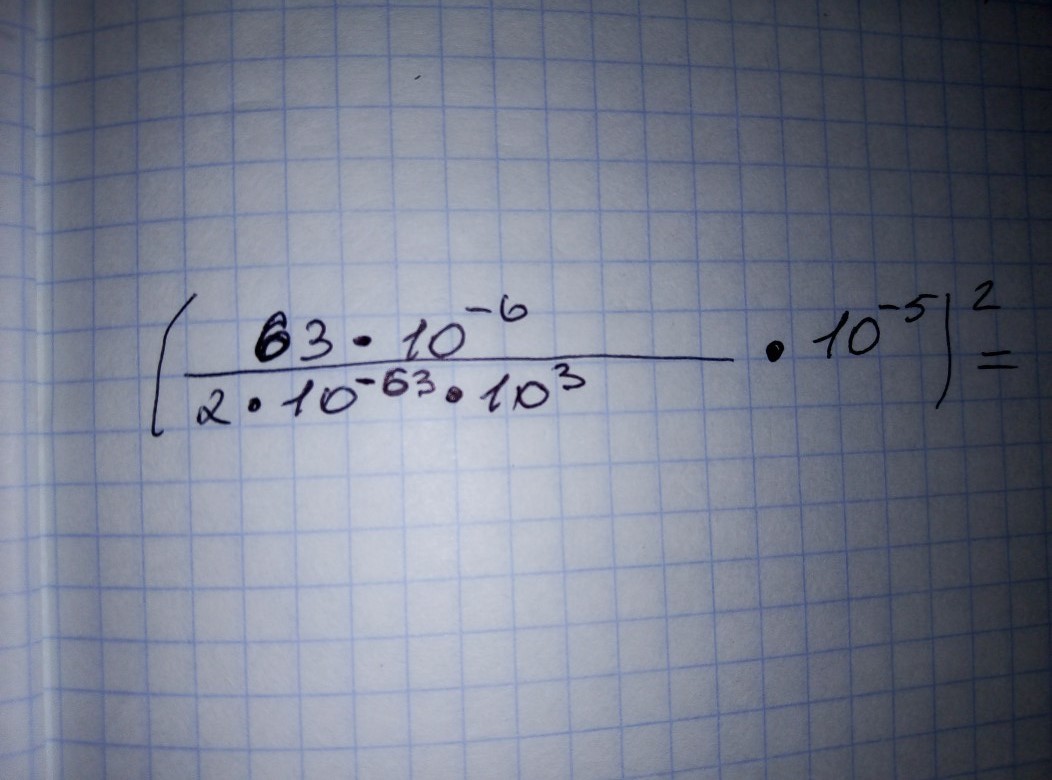 ( 63 · 10^-6 / 2 · 10^-63 · 10^3 · 10^-5 )^2 =